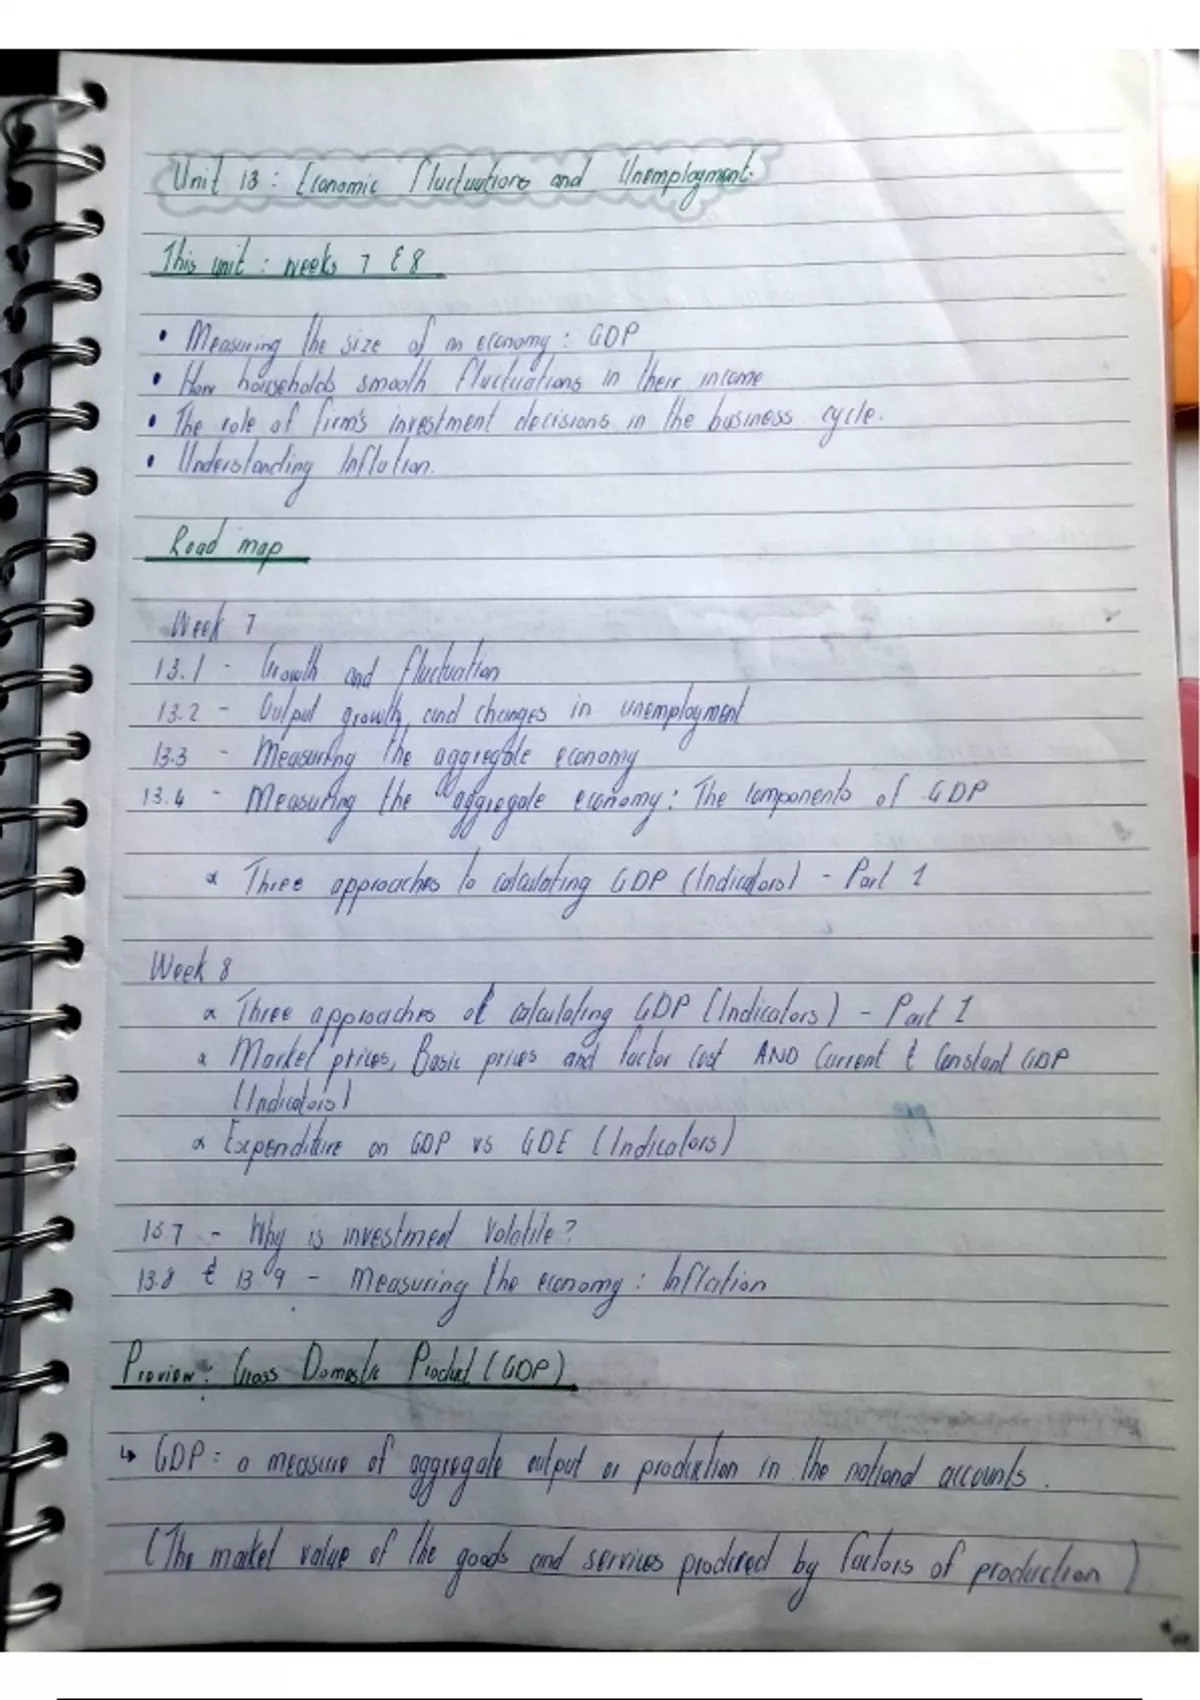 Unit 13 : Economic Fluctuations and Unemployment.
This unit : weeks 7 & 8
• Measuring the size of an economy : GDP
• How households smooth fluctuations in their income
• The role of firm's investment decisions in the business cycle.
• Understanding Inflation.
Road map
Week 7
13.1 - Growth and fluctuation
13.2 - Output growth and changes in unemployment
13.3 - Measuring the aggregate economy
13.4 - Measuring the aggregate economy : The components of GDP
α Three approaches to calculating GDP (Indicators) - Part 1
Week 8
α Three approaches of calculating GDP (Indicators) - Part 1
α Market prices, Basic prices and factor cost AND Current & Constant GDP
(Indicators)
α Expenditure on GDP vs GDE (Indicators)
13.7 - Why is investment volatile?
13.8 & 13.9 - Measuring the economy : Inflation
Preview : Gross Domestic Product (GDP)
↳ GDP : a measure of aggregate output or production in the national accounts.
(The market value of the goods and services produced by factors of production)